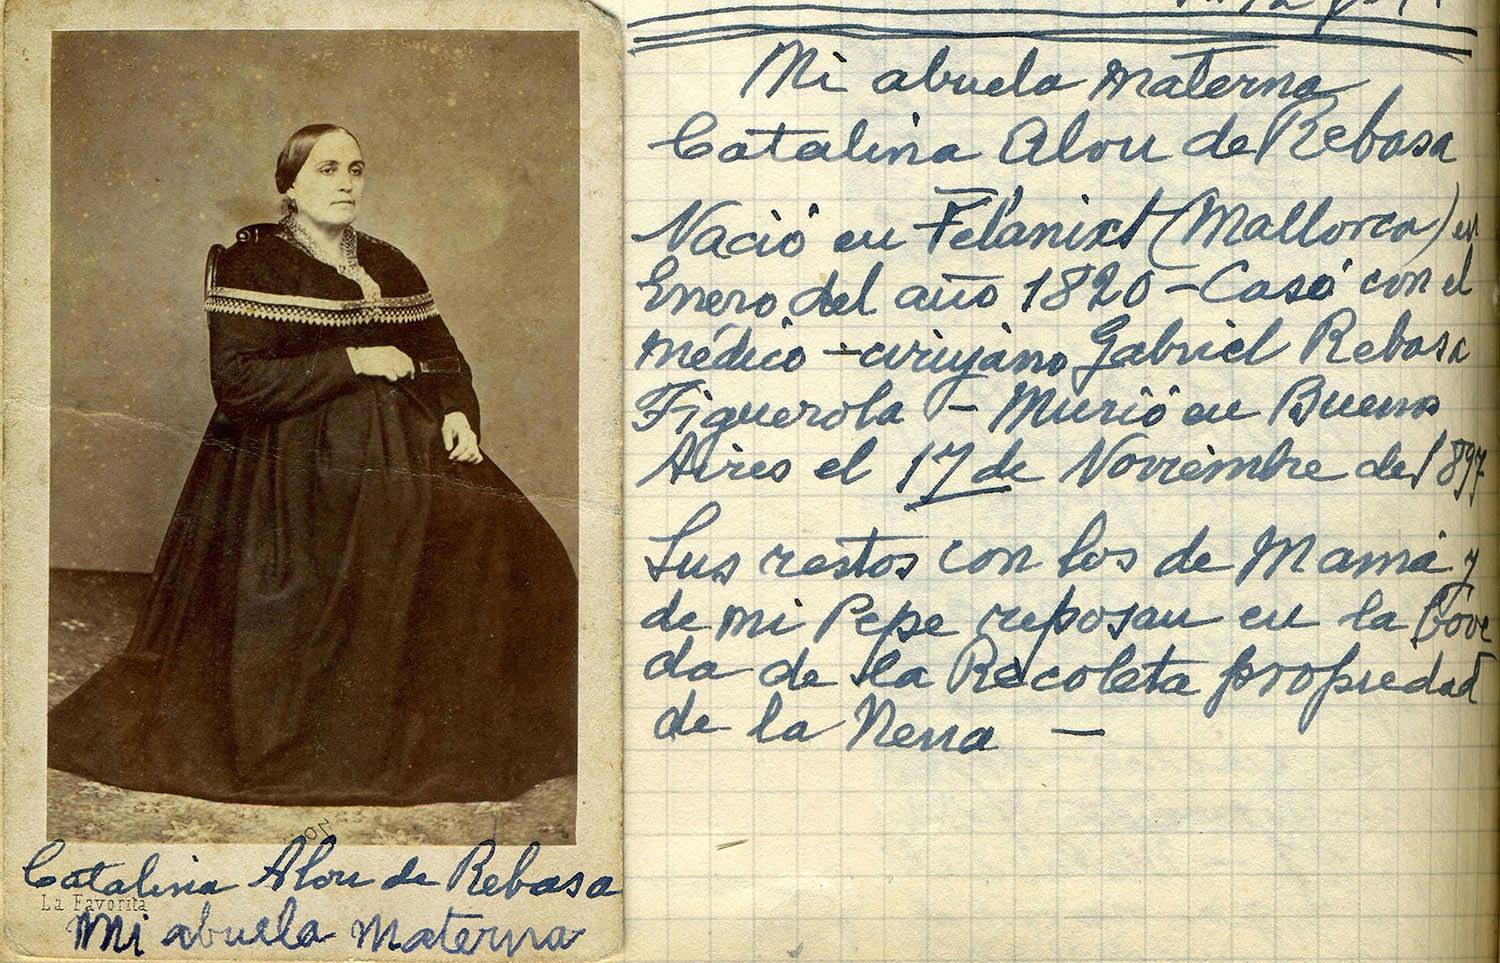 Mi abuela materna
Catalina Alou de Rebasa
Nació en Felanixt (Mallorca) en
Enero del año 1820 - Casó con el
médico - cirujano Gabriel Rebasa
Figuerola - Murió en Buenos
Aires el 17 de Noviembre de 1897
Sus restos con los de Mamá y
de mi Pepe reposan en la Bove
da de la Recoleta propiedad
de la Nena -
Catalina Alou de Rebasa
La Favorita
Mi abuela materna